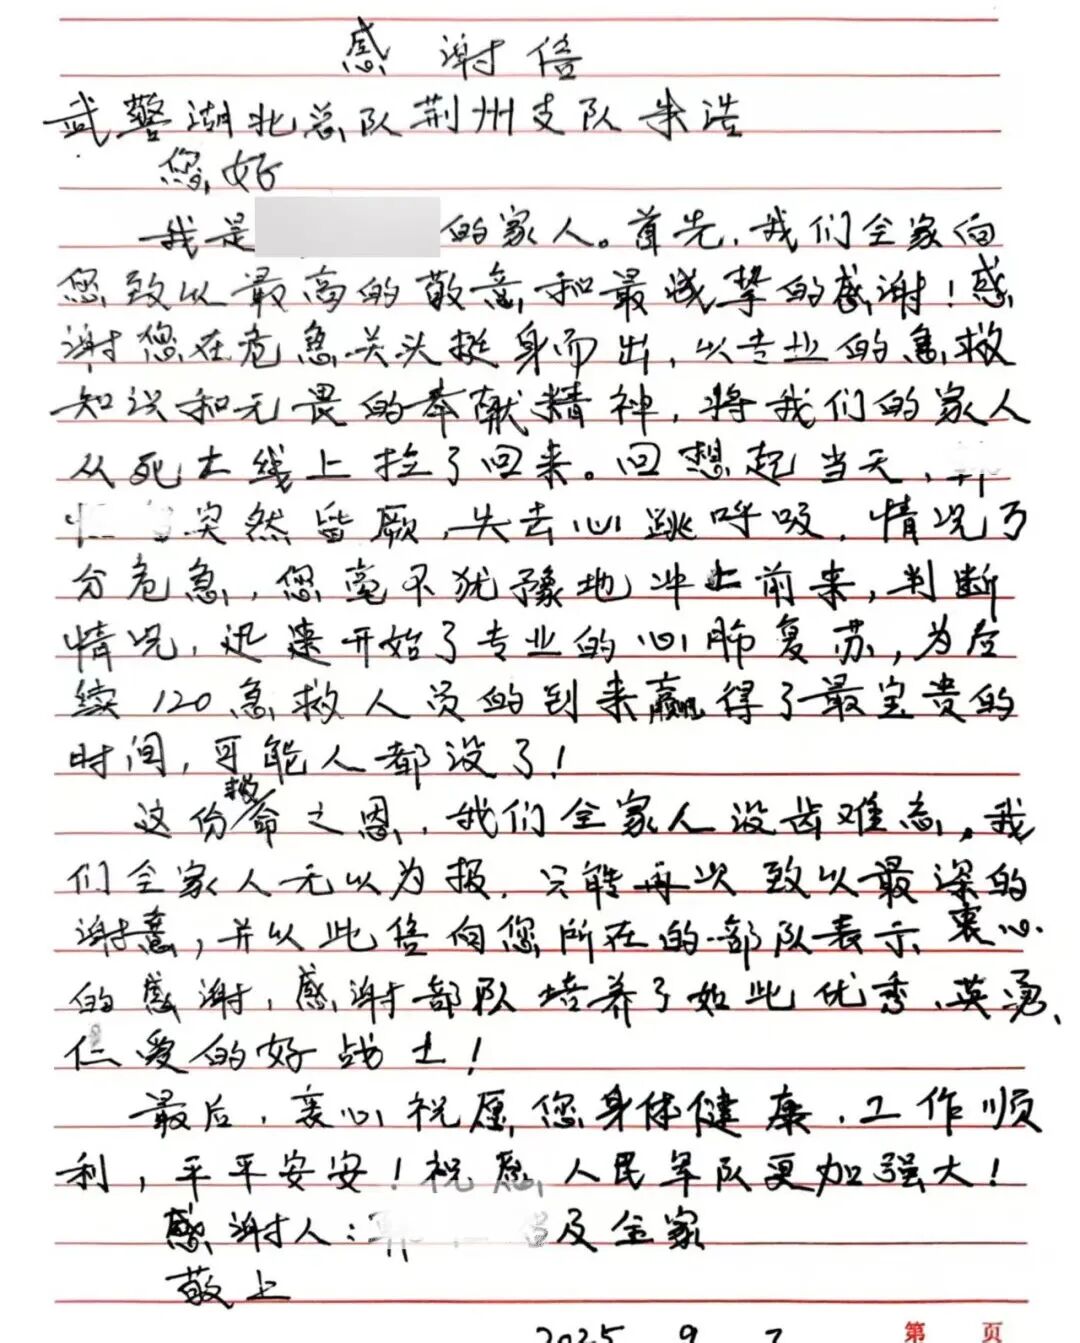 感谢信
武警湖北总队荆州支队朱浩
您好
我是 的家人。首先,我们全家向
您致以最高的敬意和最诚挚的感谢!感
谢您在危急关头挺身而出,以专业的急救
知识和无畏的奉献精神,将我们的家人
从死亡线上拉了回来。回想起当天,
突然昏厥,失去心跳呼吸,情况万
分危急,您毫不犹豫地冲上前来,判断
情况,迅速开始了专业的心肺复苏,为后
续120急救人员的到来赢得了最宝贵的
时间,可能人都没了!
这份救命之恩,我们全家人没齿难忘。我
们全家人无以为报,只能再次致以最深的
谢意,并以此信向您所在的部队表示衷心
的感谢,感谢部队培养了如此优秀、英勇、
仁爱的好战士!
最后,衷心祝愿您身体健康,工作顺
利,平平安安!祝愿人民军队更加强大!
感谢人: 及全家
敬上
2025 9 7
第 页